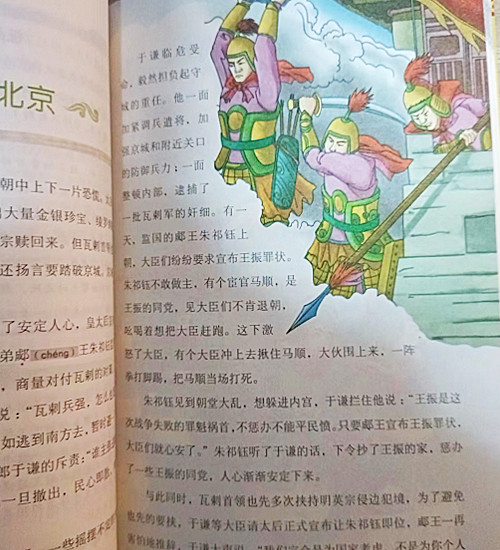 北京
朝中上下一片恐慌。
出大量金银珍宝、绫罗
宗赎回来。但瓦剌首
还扬言要踏破京城。
了安定人心，皇太后
弟郕（chéng）王朱祁钰
，商量对付瓦剌的对策
说：“瓦剌兵强，怎么
如逃到南方去，暂时避
郎于谦的斥责：“谁主
一旦撤出，民心即散
一些摇摆不定
于谦临危受
命，毅然担负起守
城的重任。他一面
加紧调兵遣将，加
强京城和附近关口
的防御兵力；一面
整顿内部，逮捕了
一批瓦剌军的奸细。有一
天，监国的郕王朱祁钰上
朝，大臣们纷纷要求宣布王振罪状。
朱祁钰不敢做主，有个宦官马顺，是
王振的同党，见大臣们不肯退朝，
吆喝着想把大臣赶跑。这下激
怒了大臣，有个大臣冲上去揪住马顺，大伙围上来，一阵
拳打脚踢，把马顺当场打死。
朱祁钰见到朝堂大乱，想躲进内宫，于谦拦住他说：“王振是这
次战争失败的罪魁祸首，不惩办不能平民愤。只要郕王宣布王振罪状，
大臣们就心安了。”朱祁钰听了于谦的话，下令抄了王振的家，惩办
了一些王振的同党，人心渐渐安定下来。
与此同时，瓦剌首领也先多次挟持明英宗侵边犯境，为了避免
也先的要挟，于谦等大臣请太后正式宣布让朱祁钰即位，郕王一再
害怕地推辞，于谦大声说：“我们完全是为国家考虑，不是为你个人